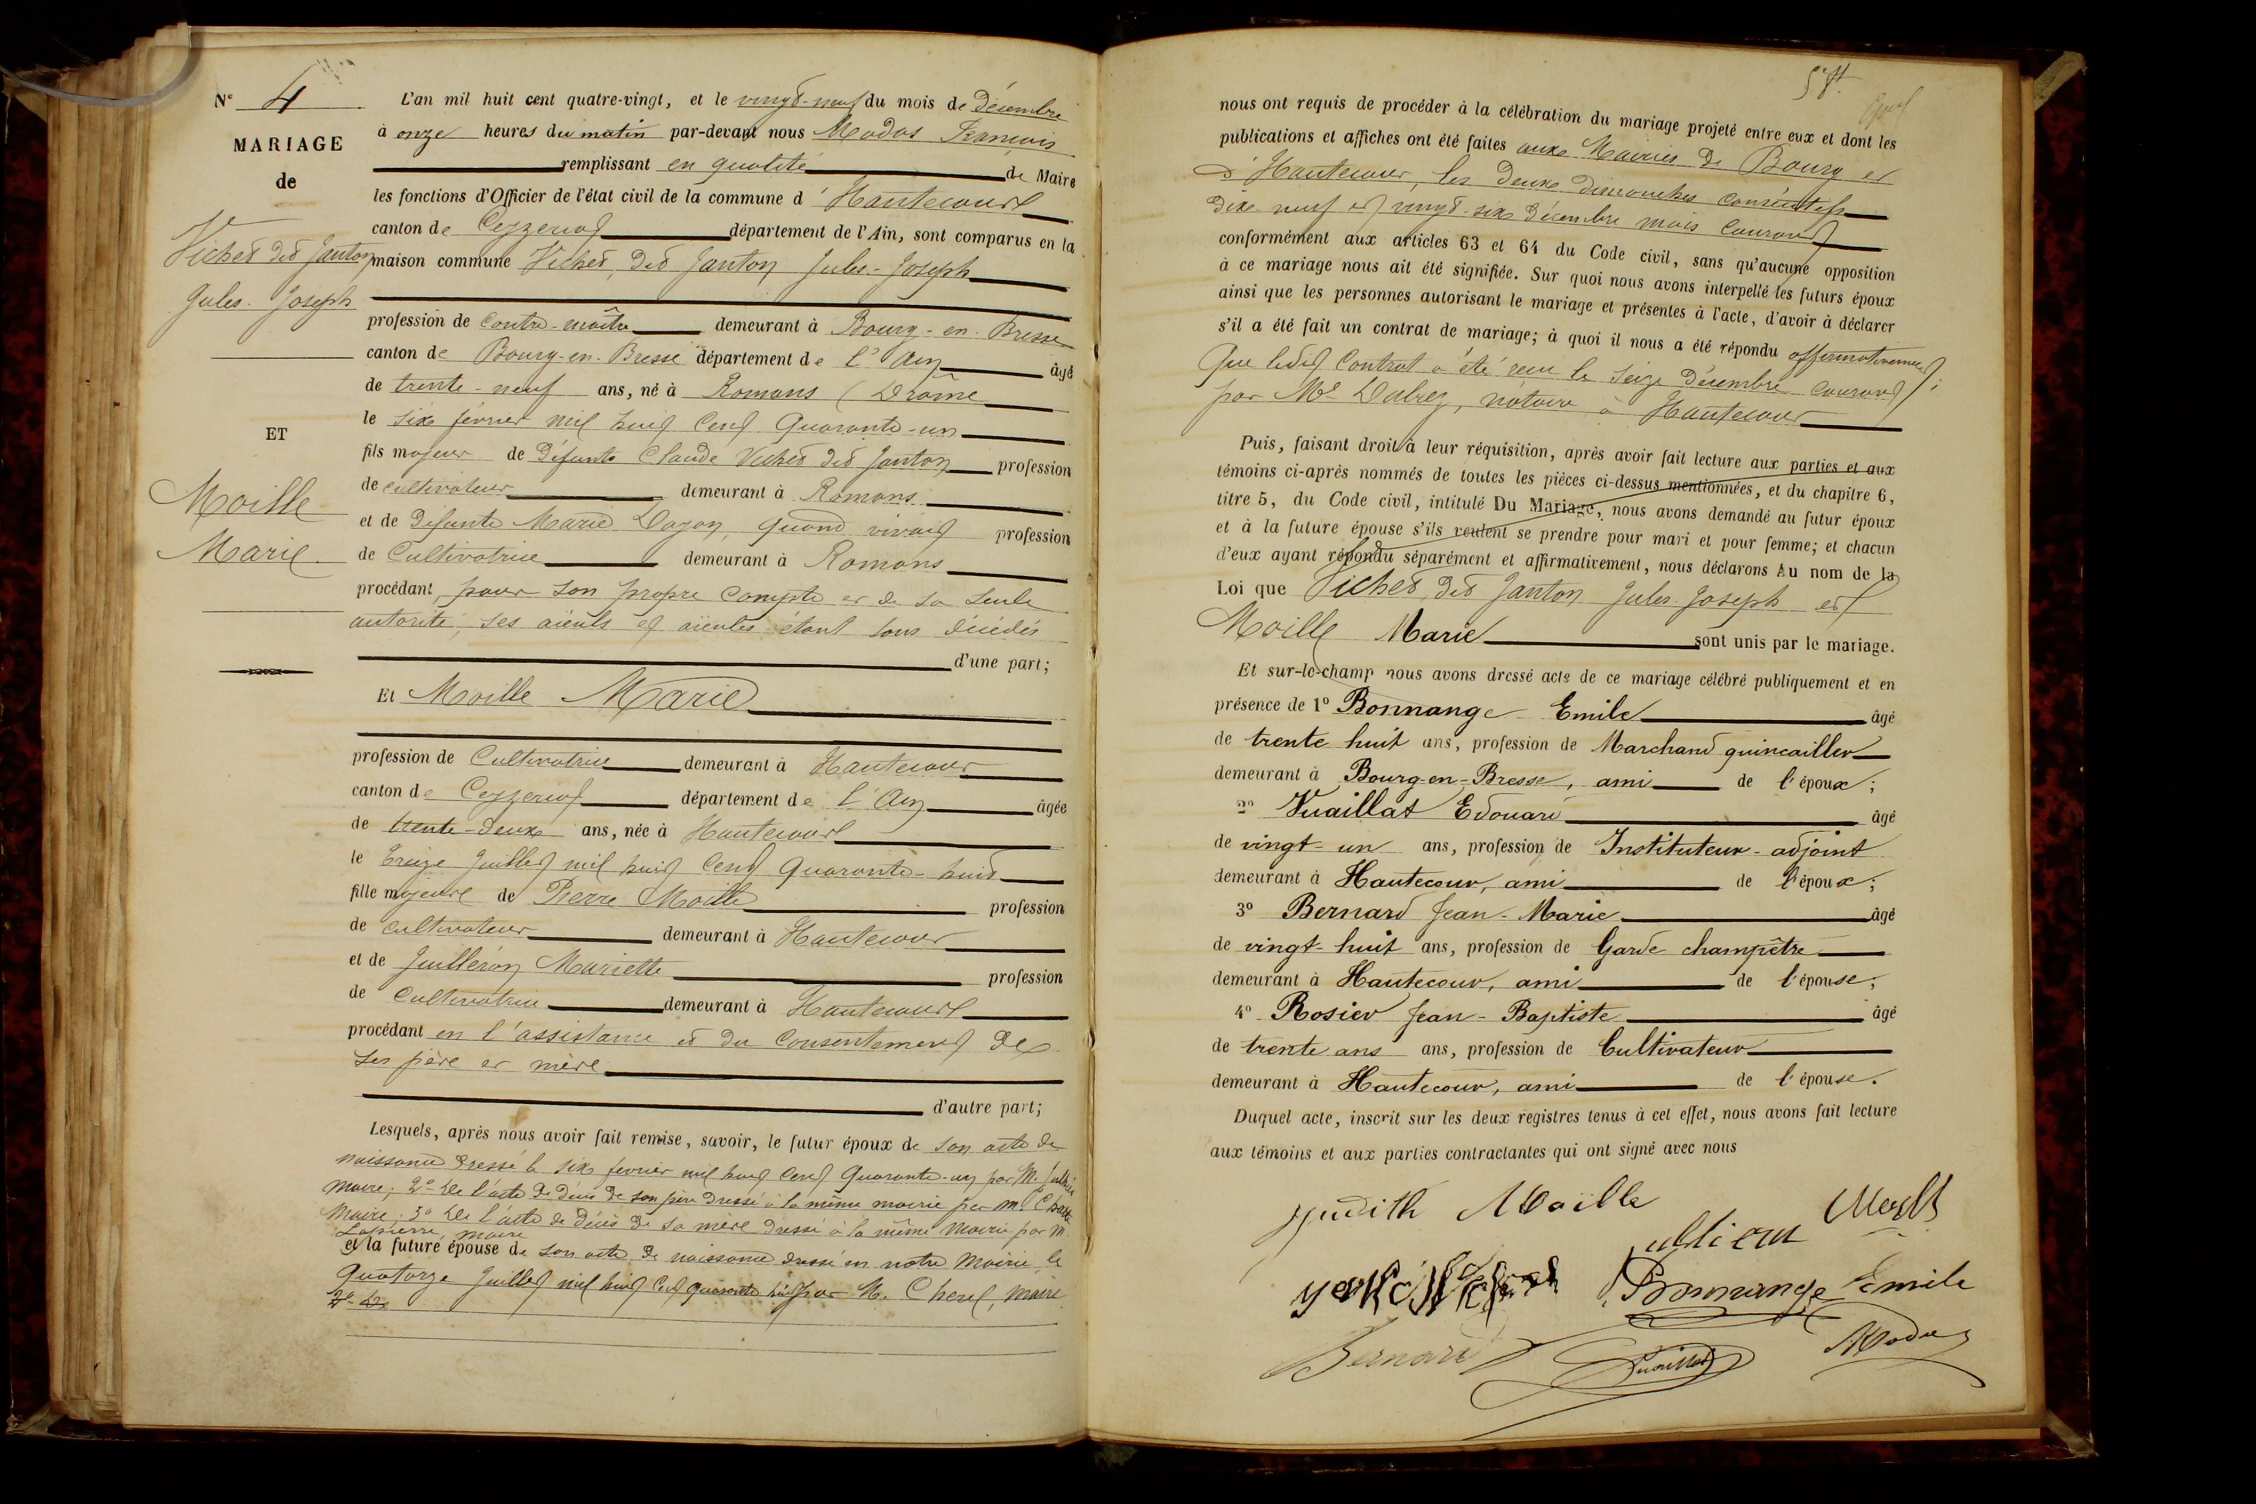 N° 4
MARIAGE
de
Vichet dit Janton
Jules-Joseph
ET
Moille
Marie
L'an mil huit cent quatre-vingt, et le vingt-neuf du mois de Décembre
à onze heures du matin par-devant nous Modas François
remplissant en qualité de Maire
les fonctions d'Officier de l'état civil de la commune d'Hautecourt
canton de Ceyzeriat département de l'Ain, sont comparus en la
maison commune Vichet, dit Janton Jules-Joseph
profession de Contre-maître demeurant à Bourg-en-Bresse
canton de Bourg-en-Bresse département de l'Ain âgé
de trente-neuf ans, né à Romans (Drôme
le six février mil huit cent Quarante-un
fils majeur de défunts Claude Vichet dit Janton profession
de cultivateur demeurant à Romans
et de défunte Marie Dayon, quand vivait profession
de Cultivatrice demeurant à Romans
procédant, pour son propre compte et de sa seule
autorité, ses aïeuls et aïeules étant tous décédés
d'une part;
Et Moille Marie
profession de Cultivatrice demeurant à Hautecour
canton de Ceyzeriat département de l'Ain âgée
de trente-deux ans, née à Hautecourt
le treize Juillet mil huit cent quarante-huit
fille majeure de Pierre Moille profession
de cultivateur demeurant à Hautecour
et de Juilleron Mariette profession
de Cultivatrice demeurant à Hautecourt
procédant en l'assistance et du Consentement de
ses père et mère
d'autre part;
Lesquels, après nous avoir fait remise, savoir, le futur époux de son acte de
naissance dressé le six février mil huit cent Quarante-un par M.
Maire; 2° De l'acte de décès de son père dressé à la même mairie par M.
Maire. 3° De l'acte de décès de sa mère dressé à la même Mairie par M.
Lapierre, maire
et la future épouse de son acte de naissance dressé en notre Mairie le
Quatorze Juillet mil huit cent quarante huit par M. Cherel, maire
2° De
nous ont requis de procéder à la célébration du mariage projeté entre eux et dont les
publications et affiches ont été faites aux Mairies de Bourg et
d'Hautecour, les deux dimanches consécutifs
dix-neuf et vingt-six décembre mois courant
conformément aux articles 63 et 64 du Code civil, sans qu'aucune opposition
à ce mariage nous ait été signifiée. Sur quoi nous avons interpellé les futurs époux
ainsi que les personnes autorisant le mariage et présentes à l'acte, d'avoir à déclarer
s'il a été fait un contrat de mariage; à quoi il nous a été répondu affirmativement;
Que ledit Contrat a été reçu le seize décembre courant
par Me Dubrez, notaire à Hautecour
Puis, faisant droit à leur réquisition, après avoir fait lecture aux parties et aux
témoins ci-après nommés de toutes les pièces ci-dessus mentionnées, et du chapitre 6,
titre 5, du Code civil, intitulé Du Mariage, nous avons demandé au futur époux
et à la future épouse s'ils veulent se prendre pour mari et pour femme; et chacun
d'eux ayant répondu séparément et affirmativement, nous déclarons Au nom de la
Loi que Vichet, dit Janton Jules-Joseph et
Moille Marie sont unis par le mariage.
Et sur-le-champ nous avons dressé acte de ce mariage célébré publiquement et en
présence de 1° Bonnange Emile âgé
de trente huit ans, profession de Marchand quincailler
demeurant à Bourg-en-Bresse, ami de l'époux;
2° Vuaillat Edouard âgé
de vingt-un ans, profession de Instituteur-adjoint
demeurant à Hautecour, ami de l'époux;
3° Bernard Jean-Marie âgé
de vingt-huit ans, profession de Garde champêtre
demeurant à Hautecour, ami de l'épouse;
4° Rosier Jean-Baptiste âgé
de trente ans ans, profession de Cultivateur
demeurant à Hautecour, ami de l'épouse.
Duquel acte, inscrit sur les deux registres tenus à cet effet, nous avons fait lecture
aux témoins et aux parties contractantes qui ont signé avec nous
Judith Moille
Bonnange Emile
Bernard
Vuaillat
Modas